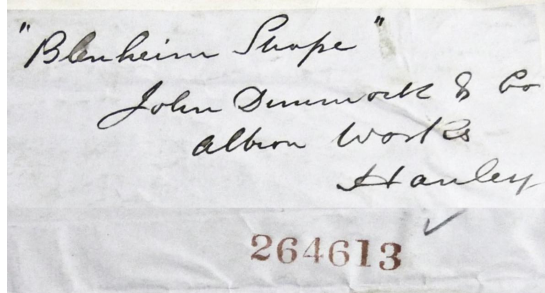 "Blenheim Shape"
John Dimmock & Co
Albion Works
Hanley
264613